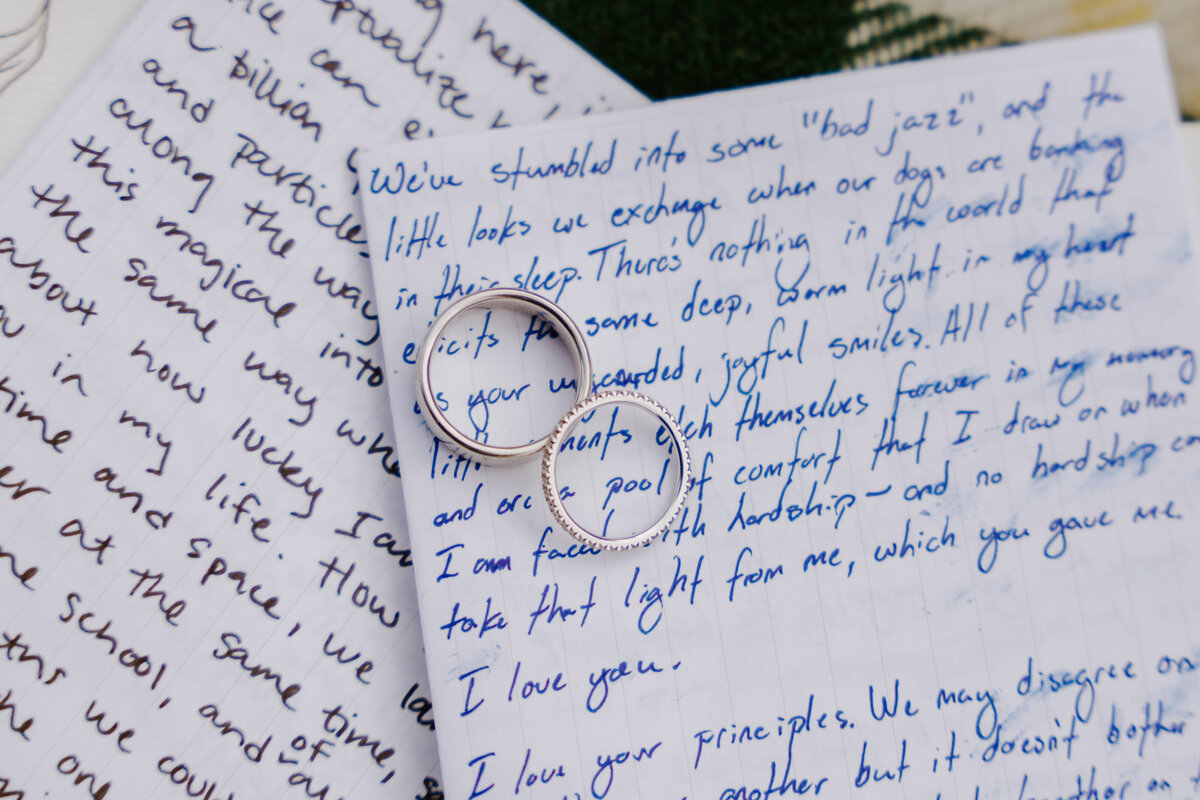 here,
can
a billion
and particles
along the way
this magical into
the same way
about how lucky I am
in my life. How
time and space, we
at the same time,
school, and
we could of
the one
We've stumbled into some "bad jazz", and the
little looks we exchange when our dogs are barking
in their sleep. There's nothing in the world that
elicits the same deep, warm light in my heart
as your unguarded, joyful smiles. All of these
little moments etch themselves forever in my memory
and are a pool of comfort that I draw on when
I am faced with hardship - and no hardship can
take that light from me, which you gave me
I love you.
I love your principles. We may disagree on
another but it doesn't bother
another on